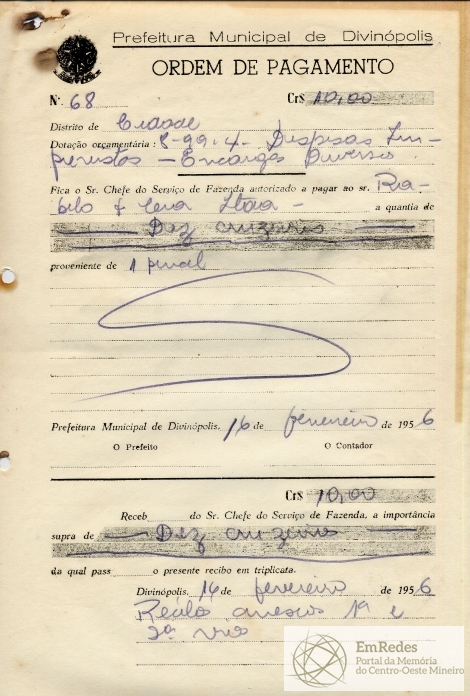 Prefeitura Municipal de Divinópolis
ORDEM DE PAGAMENTO
N.º 68 Cr$ 10,00
Distrito de Cidade
Dotação orçamentária: 8-99-4- Despesas Im-
previstos - Encargos Diversos.
Fica o Sr. Chefe do Serviço de Fazenda autorizado a pagar ao sr.
a quantia de
Dez cruzeiros
proveniente de 1
Prefeitura Municipal de Divinópolis, 16 de fevereiro de 1956
O Prefeito O Contador
Cr$ 10,00
Receb do Sr. Chefe do Serviço de Fazenda, a importância
supra de Dez cruzeiros
da qual pass o presente recibo em triplicata.
Divinópolis, 16 de fevereiro de 1956
Recibo anexos 1ª e
2ª vias
EmRedes
Portal da Memória
do Centro-Oeste Mineiro